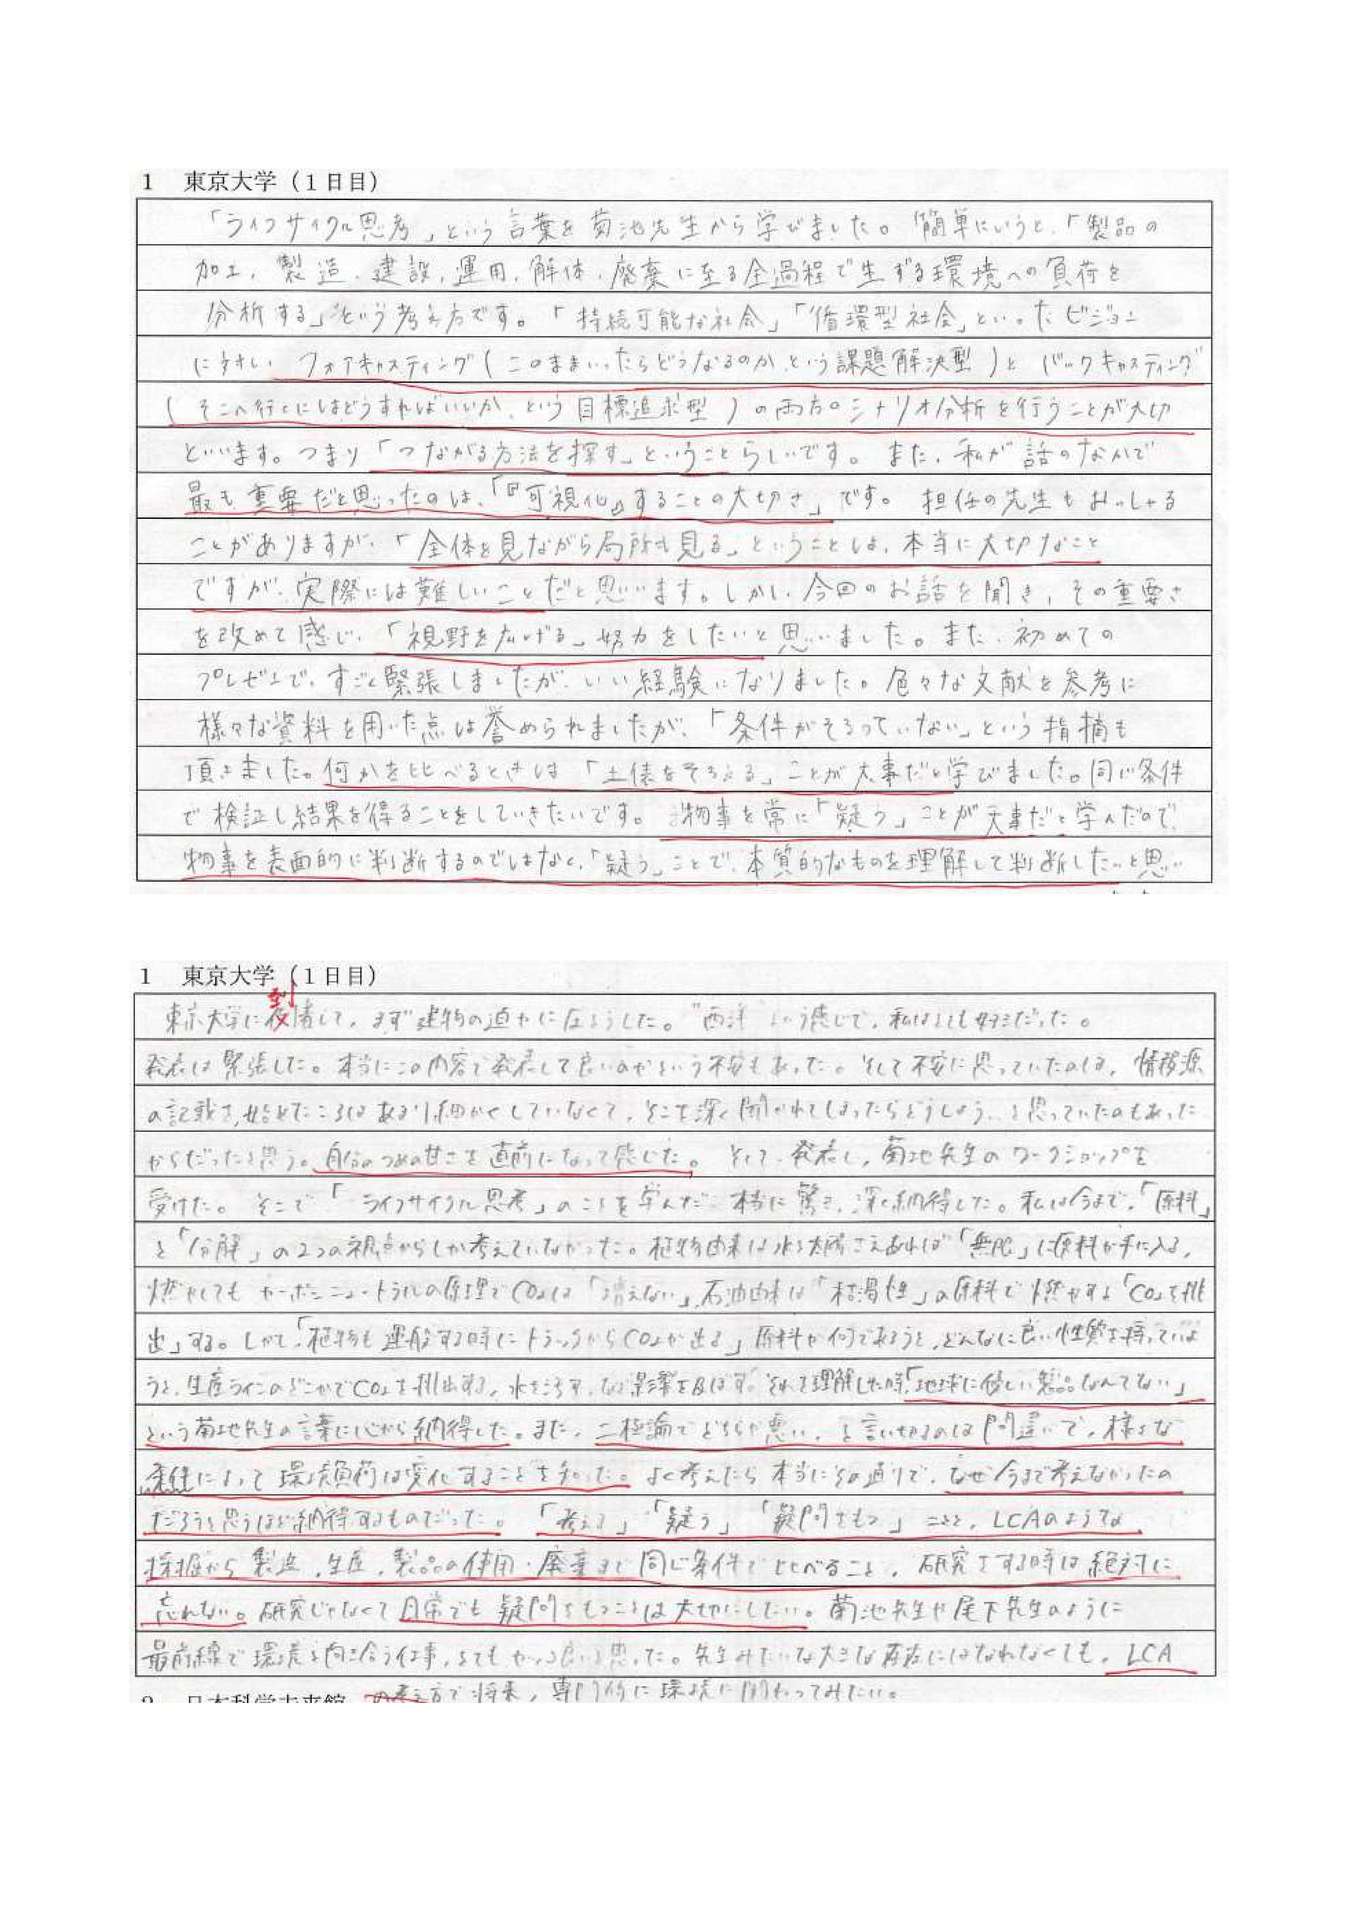 1 東京大学（1日目）
「ライフサイクル思考」という言葉を菊池先生から学びました。簡単にいうと、「製品の
加工、製造、建設、運用、解体、廃棄に至る全過程で生ずる環境への負荷を
分析する」という考え方です。「持続可能な社会」「循環型社会」といったビジョン
フォアキャスティング（このままいったらどうなるのか、という課題解決型）とバックキャスティング
（そこへ行くにはどうすればいいか、という目標追求型）の両方のシナリオ分析を行うことが大切
といいます。つまり「つながる方法を探す」ということらしいです。また、私が話のなかで
最も重要だと思ったのは、「『可視化』することの大切さ」です。担任の先生もおっしゃる
ことがありますが、「全体を見ながら局所も見る」ということは、本当に大切なこと
ですが、実際には難しいことだと思います。しかし、今回のお話を聞き、その重要さ
を改めて感じ、「視野を広げる」努力をしたいと思いました。また、初めての
プレゼンで、すごく緊張しましたが、いい経験になりました。色々な文献を参考に
様々な資料を用いた点は誉められましたが、「条件がそろっていない」という指摘も
頂きました。何かを比べるときは「土俵をそろえる」ことが大事だと学びました。同じ条件
で検証し結果を得ることをしていきたいです。物事を常に「疑う」ことが大事だと学んだので、
物事を表面的に判断するのではなく、「疑う」ことで、本質的なものを理解して判断したいと思い
1 東京大学（1日目）
到
東京大学に着して、まず建物の迫力に圧とうした。"西洋"という感じで、私はとても好きだった。
発表は緊張した。本当にこの内容で発表して良いのかという不安もあった。そして不安に思っていたのは、情報源
の記載を、始めたころはあまり細かくしていなくて、そこを深く聞かれてしまったらどうしよう、と思っていたのもあった
からだったと思う。自分のつめの甘さを直前になって感じた。そして、発表し、菊地先生のワークショップを
受けた。そこで「ライフサイクル思考」のことを学んだ。本当に驚き、深く納得した。私は今まで、「原料」
と「分解」の2つの視点からしか考えていなかった。植物由来は水と太陽さえあれば「無限」に原料が手に入る、
燃やしてもカーボンニュートラルの原理でCO₂は「増えない」、石油由来は「枯渇性」の原料で燃やすと「CO₂を排
出」する。しかし、「植物も運搬する時にトラックからCO₂が出る」原料が何であろうと、どんなに良い性質を持っていよ
うと、生産ラインのどこかでCO₂を排出する、水をこす、など影響を及ぼす。それを理解した時、「地球に優しい製品なんてない」
という菊地先生の言葉に心から納得した。また、二極論でどちらが悪い、と言い切るのは間違いで、様々な
条件によって環境負荷は変化することを知った。よく考えたら本当にその通りで、なぜ今まで考えなかったの
だろうと思うほど納得するものだった。「考える」「疑う」「疑問をもつ」こと、LCAのような
採掘から製造、生産、製品の使用・廃棄まで同じ条件で比べること、研究をする時は絶対に
忘れない。研究じゃなくて日常でも疑問をもつことは大切にしたい。菊池先生や尾下先生のように
最前線で環境と向き合う仕事、とてもかっこ良いと思った。先生みたいな大きな存在にはなれなくても、LCA
の考え方で将来、専門的に環境に関わってみたい。
2 日本科学未来館